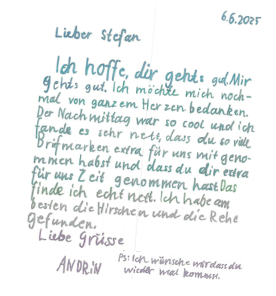 6.6.2025
Lieber Stefan
Ich hoffe, dir gehts gut. Mir
gehts gut. Ich möchte mich noch-
mal von ganzem Herzen bedanken.
Der Nachmittag war so cool und ich
fande es sehr nett, dass du so viele
Brifmarken extra für uns mit geno-
mmen habst und dass du dir extra
für uns Zeit genommen hast. Das
finde ich echt nett. Ich habe am
besten die Hirschen und die Rehe
gefunden.
Liebe Grüsse
ANDRIN
Ps: Ich wünsche mir dass du
wieder mal kommst.